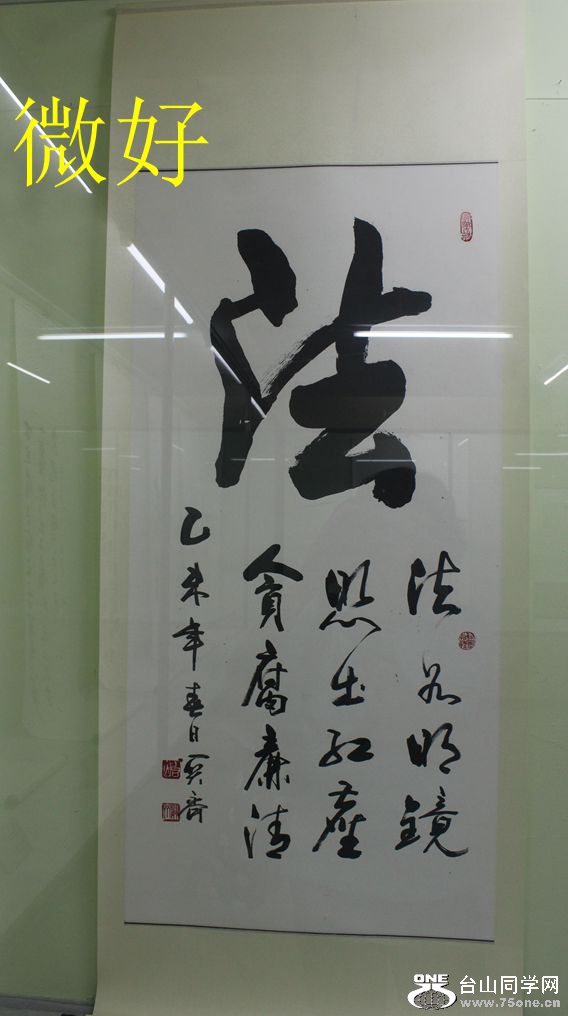 微好
法
法若明鏡
照出红塵
貪腐廉清
乙未年春日
ONE 台山同学网
www.75one.cn